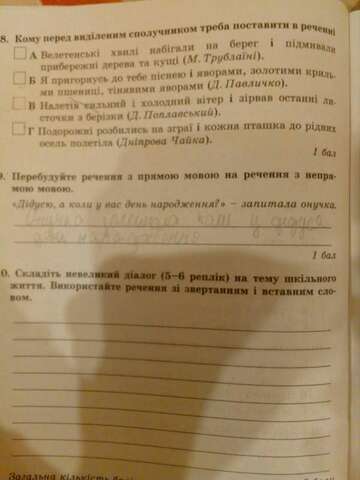 8. Кому перед виділеним сполучником треба поставити в реченні
А Велетенські хвилі набігали на берег і підмивали
прибережні дерева та кущі (М. Трублаїні).
Б Я пригорнусь до тебе піснею і яворами, золотими криль-
ми пшениці, тінявими яворами (Д. Павличко).
В Налетів сильний і холодний вітер і зірвав останні ли-
сточки з берізки (Д. Поплавський).
Г Подорожні розбились на зграї і кожна пташка до рідних
осель полетіла (Дніпрова Чайка).
1 бал
9. Перебудуйте речення з прямою мовою на речення з непря-
мою мовою.
«Дідусю, а коли у вас день народження?» – запитала онучка.
Онучка коли у дідуся
народження
1 бал
0. Складіть невеликий діалог (5–6 реплік) на тему шкільного
життя. Використайте речення зі звертанням і вставним сло-
вом.
Загальна кількість